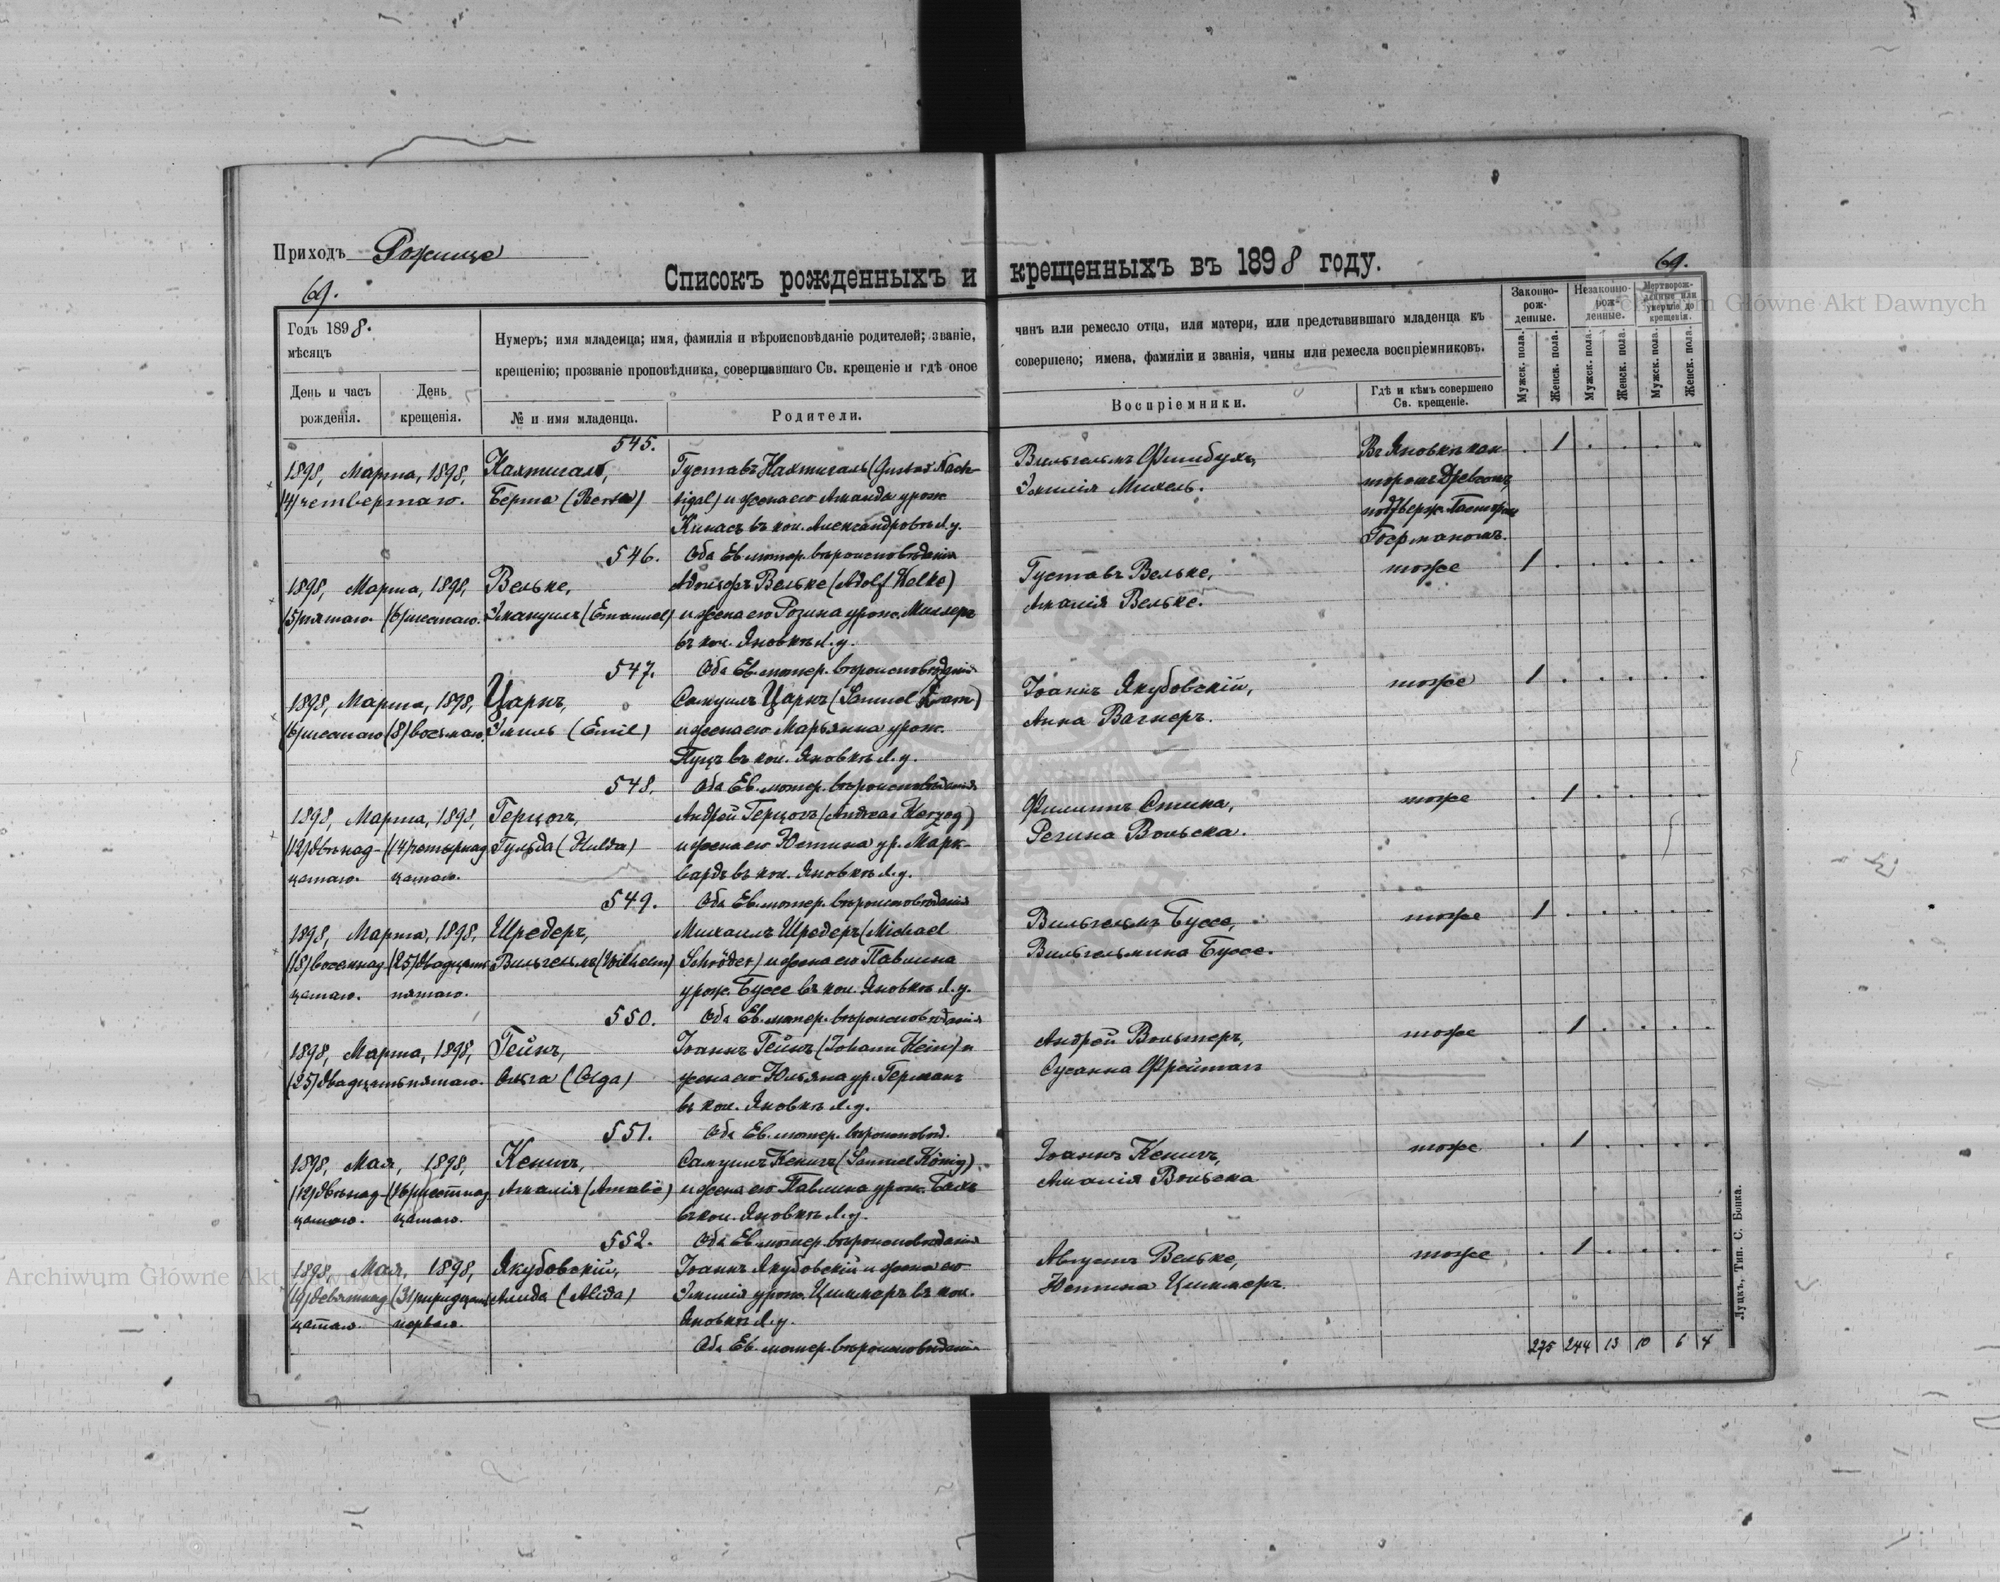 Приходъ Рожище
69.
69.
Списокъ рожденныхъ и крещенныхъ въ 1898 году.
Годъ 1898.
мѣсяцъ
День и часъ рожденія.
День крещенія.
Нумеръ; имя младенца; имя, фамилія и вѣроисповѣданіе родителей; званіе,
крещенію; прозваніе проповѣдника, совершавшаго Св. крещеніе и гдѣ оное
№ и имя младенца.
Родители.
чинъ или ремесло отца, или матери, или представившаго младенца къ
совершено; имена, фамиліи и званія, чины или ремесла воспріемниковъ.
Воспріемники.
Гдѣ и кѣмъ совершено Св. крещеніе.
Законно-рож-денные.
Незаконно-рож-денные.
Мертворож-денные или умершіе до крещенія.
Мужск. пола.
Женск. пола.
Мужск. пола.
Женск. пола.
Мужск. пола.
Женск. пола.
545.
1898, Марта, 1898, Нахтигаль, Густавъ Нахтигаль (Gustav Nach- Вильгельмъ Въ Яновкѣ кан- 1
(4) четвертаго. Берта (Berta) tigal) и жена его Аманда урож. Эмилія Михель. торомъ
въ кол. Александровкѣ Л.у. подтверж. Пасторомъ
546. Оба Ев. лютер. вѣроисповѣданія
1898, Марта, 1898, Вельке, Адольфъ Вельке (Adolf Welke) Густавъ Вельке, тоже 1
(5) пятаго. (6) шестаго. Эмануилъ (Emanuel) и жена его Розина урож. Миллеръ Амалія Вельке.
въ кол. Яновкѣ Л.у.
547. Оба Ев. лютер. вѣроисповѣданія
1898, Марта, 1898, Царнъ, Самуилъ Царнъ (Samuel Zarn) Іоаннъ Якубовскій, тоже 1
(6) шестаго (8) восьмаго. Эмиль (Emil) и жена его Марьянна урож. Анна Вагнеръ.
въ кол. Яновкѣ Л.у.
548. Оба Ев. лютер. вѣроисповѣданія
1898, Марта, 1898, Герцогъ, Андрей Герцогъ (Andreas Herzog) Филиппъ тоже 1
(12) двѣнад- (14) четырнад- Гульда (Hulda) и жена его Юстина ур. Марк- Регина Вольска.
цатаго. цатаго. вардъ въ кол. Яновкѣ Л.у.
549. Оба Ев. лютер. вѣроисповѣданія
1898, Марта, 1898, Шредеръ, Михаилъ Шредеръ (Michael Вильгельмъ Буссе, тоже 1
(18) восемнад- (25) двадцать Вильгельмъ (Wilhelm) Schröder) и жена его Павлина Вильгельмина Буссе.
цатаго. пятаго. урож. Буссе въ кол. Яновкѣ Л.у.
550. Оба Ев. лютер. вѣроисповѣданія
1898, Марта, 1898, Гейнъ, Іоаннъ Гейнъ (Johann Hein) и Андрей Вольтеръ, тоже 1
(25) двадцать пятаго. Ольга (Olga) жена его Юльяна ур. Германъ Сусанна Фрейтагъ
въ кол. Яновкѣ Л.у.
551. Оба Ев. лютер. вѣроисповѣд.
1898, Мая, 1898, Кенигъ, Самуилъ Кенигъ (Samuel König) Іоаннъ Кенигъ, тоже 1
(12) двѣнад- (16) шестнад- Амалія (Amalie) и жена его Павлина урож. Амалія Вольска
цатаго. цатаго. въ кол. Яновкѣ Л.у.
552. Оба Ев. лютер. вѣроисповѣданія
1898, Мая, 1898, Якубовскій, Іоаннъ Якубовскій и жена его Августъ Вельке, тоже 1
(19) девятнад- (31) тридцать Алида (Alida) Эмилія урож. Циммеръ въ кол. Юстина Циммеръ
цатаго. перваго. Яновкѣ Л.у.
Оба Ев. лютер. вѣроисповѣданія
275 244 13 10 6 4
Луцкъ, Тип. С. Бонка.
Archiwum Główne Akt Dawnych
Archiwum Główne Akt Dawnych